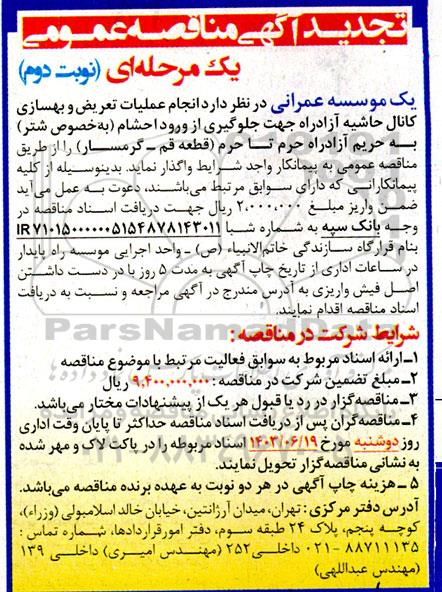 تجدید آگهی مناقصه عمومی
یک مرحله‌ای (نوبت دوم)
یک موسسه عمرانی در نظر دارد انجام عملیات تعریض و بهسازی
کانال حاشیه آزادراه جهت جلوگیری از ورود احشام (به‌خصوص شتر)
به حریم آزادراه حرم تا حرم (قطعه قم ـ گرمسار) را از طریق
مناقصه عمومی به پیمانکار واجد شرایط واگذار نماید. بدینوسیله از کلیه
پیمانکارانی که دارای سوابق مرتبط می‌باشند، دعوت به عمل می‌آید
ضمن واریز مبلغ ۲۰۰۰۰۰۰۰ ریال جهت دریافت اسناد مناقصه در
وجه بانک سپه به شماره شبا IR۷۱۰۱۵۰۰۰۰۰۰۵۱۵۴۸۷۸۱۴۳۰۱۱
بنام قرارگاه سازندگی خاتم‌الانبیاء (ص) ـ واحد اجرایی موسسه راه پایدار
در ساعات اداری از تاریخ چاپ آگهی به مدت ۵ روز با در دست داشتن
اصل فیش واریزی به آدرس مندرج در آگهی مراجعه و نسبت به دریافت
اسناد مناقصه اقدام نمایند.
شرایط شرکت در مناقصه:
۱ـ ارائه اسناد مربوط به سوابق فعالیت مرتبط با موضوع مناقصه
۲ـ مبلغ تضمین شرکت در مناقصه: ۹,۴۰۰,۰۰۰,۰۰۰ ریال
۳ـ مناقصه‌گزار در رد یا قبول هر یک از پیشنهادات مختار می‌باشد.
۴ـ مناقصه‌گران پس از دریافت اسناد مناقصه حداکثر تا پایان وقت اداری
روز دوشنبه مورخ ۱۴۰۳/۰۶/۱۹ اسناد مربوطه را در پاکت لاک و مهر شده
به نشانی مناقصه‌گزار تحویل نمایند.
۵ ـ هزینه چاپ آگهی در هر دو نوبت به عهده برنده مناقصه می‌باشد.
آدرس دفتر مرکزی: تهران، میدان آرژانتین، خیابان خالد اسلامبولی (وزراء)،
کوچه پنجم، پلاک ۲۴ طبقه سوم، دفتر امور قراردادها، شماره تماس:
۸۸۷۱۱۱۳۵-۰۲۱ داخلی ۲۵۲ (مهندس امیری) داخلی ۱۳۹
(مهندس عبداللهی)